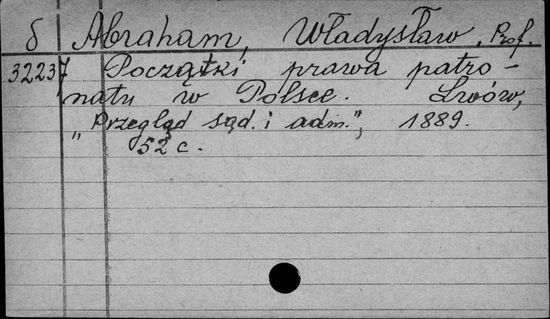 б Abraham, Władysław, Prof.
32237 Początki prawa patro-
natu w Polsce. Lwów,
„Przegląd sąd. i adm.”, 1889.
52 c.